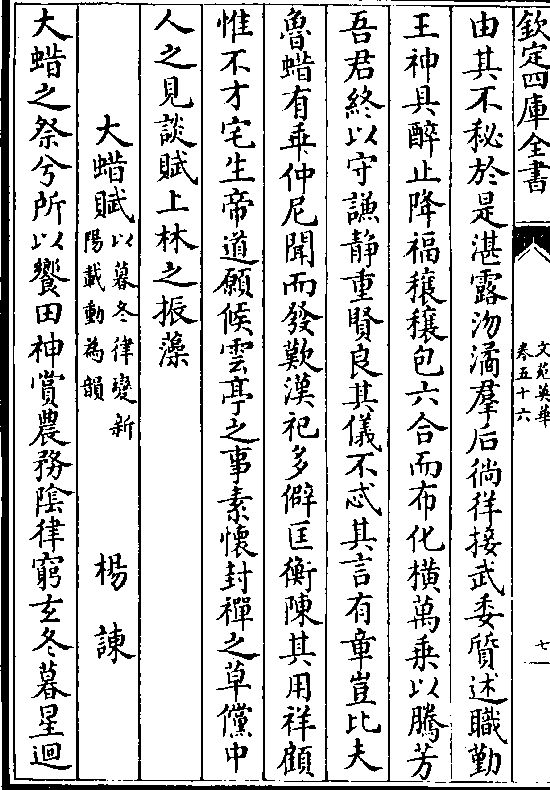 欽定四庫全書
文苑英華
卷五十六
七
由其不秘於是湛露沕潏羣后徜徉接武委質述職勤
王神具醉止降福穰穰包六合而布化橫萬乘以騰芳
吾君終以守謙靜重賢良其儀不忒其言有章豈比夫
魯蜡有乖仲尼聞而發歎漢祀多僻匡衡陳其用祥顧
惟不才宅生帝道願候雲亭之事素懷封禪之草儻中
人之見談賦上林之振藻
大蜡賦以暮冬律變新
陽載動為韻
楊諫
大蜡之祭兮所以饗田神賞農務陰律窮玄冬暮星迴